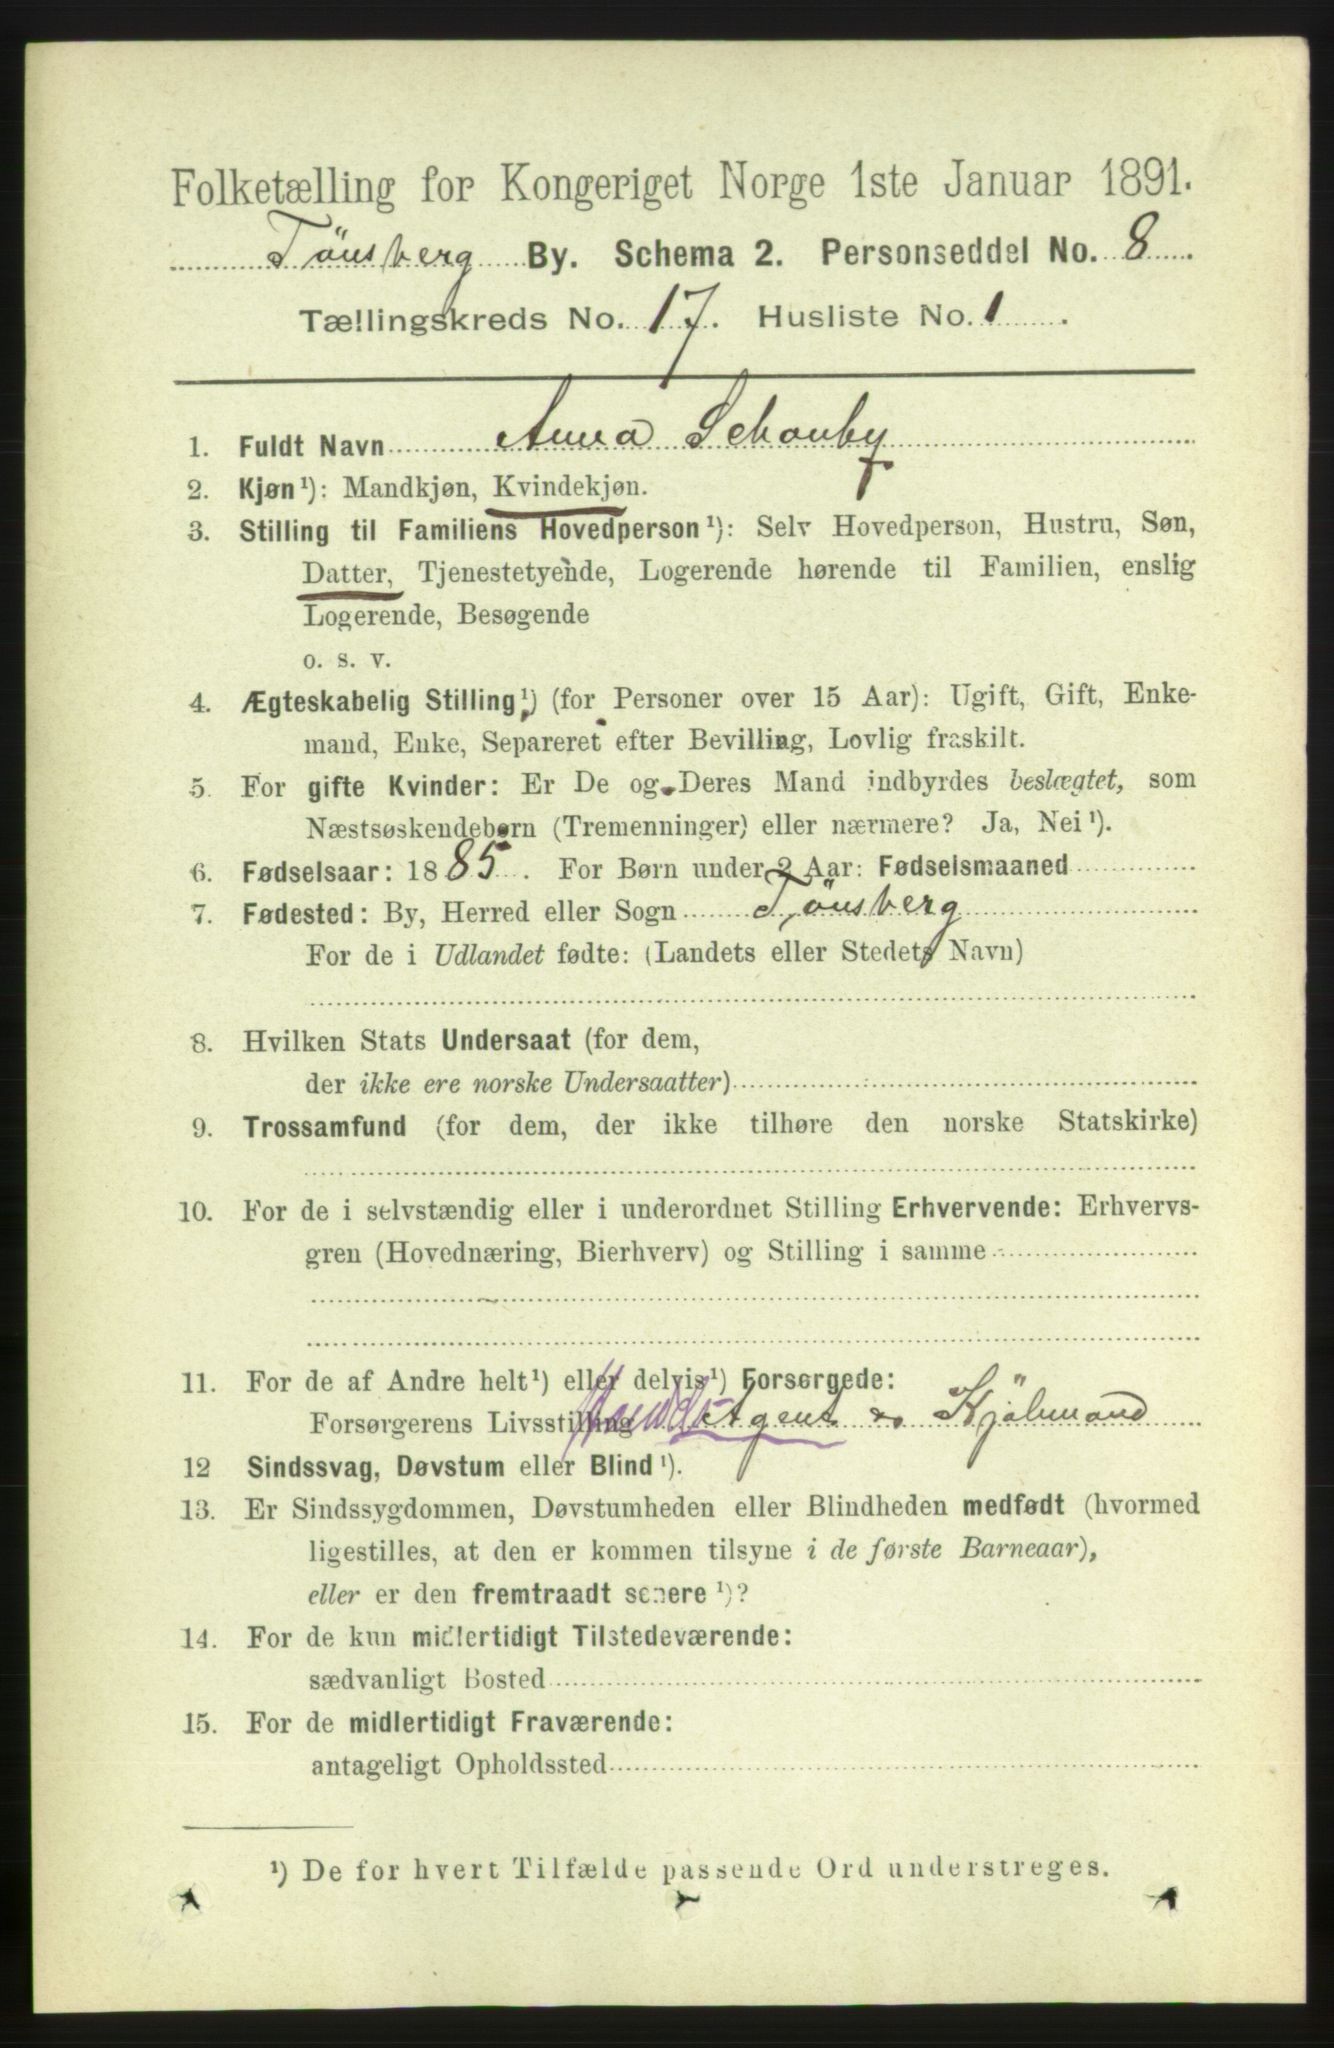 Folketælling for Kongeriget Norge 1ste Januar 1891.
Tönsberg By. Schema 2. Personseddel No. 8
Tællingskreds No. 17. Husliste No. 1.
1. Fuldt Navn Anna Schouby
2. Kjøn¹): Mandkjøn, Kvindekjøn.
3. Stilling til Familiens Hovedperson¹): Selv Hovedperson, Hustru, Søn,
Datter, Tjenestetyende, Logerende hørende til Familien, enslig
Logerende, Besøgende
o. s. v.
4. Ægteskabelig Stilling¹) (for Personer over 15 Aar): Ugift, Gift, Enke-
mand, Enke, Separeret efter Bevilling, Lovlig fraskilt.
5. For gifte Kvinder: Er De og Deres Mand indbyrdes beslægtet, som
Næstsøskendebørn (Tremenninger) eller nærmere? Ja, Nei¹).
6. Fødselsaar: 1885. For Børn under 2 Aar: Fødselsmaaned
7. Fødested: By, Herred eller Sogn Tönsberg
For de i Udlandet fødte: (Landets eller Stedets Navn)
8. Hvilken Stats Undersaat (for dem,
der ikke ere norske Undersaatter)
9. Trossamfund (for dem, der ikke tilhøre den norske Statskirke)
10. For de i selvstændig eller i underordnet Stilling Erhvervende: Erhvervs-
gren (Hovednæring, Bierhverv) og Stilling i samme
11. For de af Andre helt¹) eller delvis¹) Forsørgede:
Forsørgerens Livsstilling Agent & Kjöbmand
12 Sindssvag, Døvstum eller Blind¹).
13. Er Sindssygdommen, Døvstumheden eller Blindheden medfødt (hvormed
ligestilles, at den er kommen tilsyne i de første Barneaar),
eller er den fremtraadt senere¹)?
14. For de kun midlertidigt Tilstedeværende:
sædvanligt Bosted
15. For de midlertidigt Fraværende:
antageligt Opholdssted
¹) De for hvert Tilfælde passende Ord understreges.